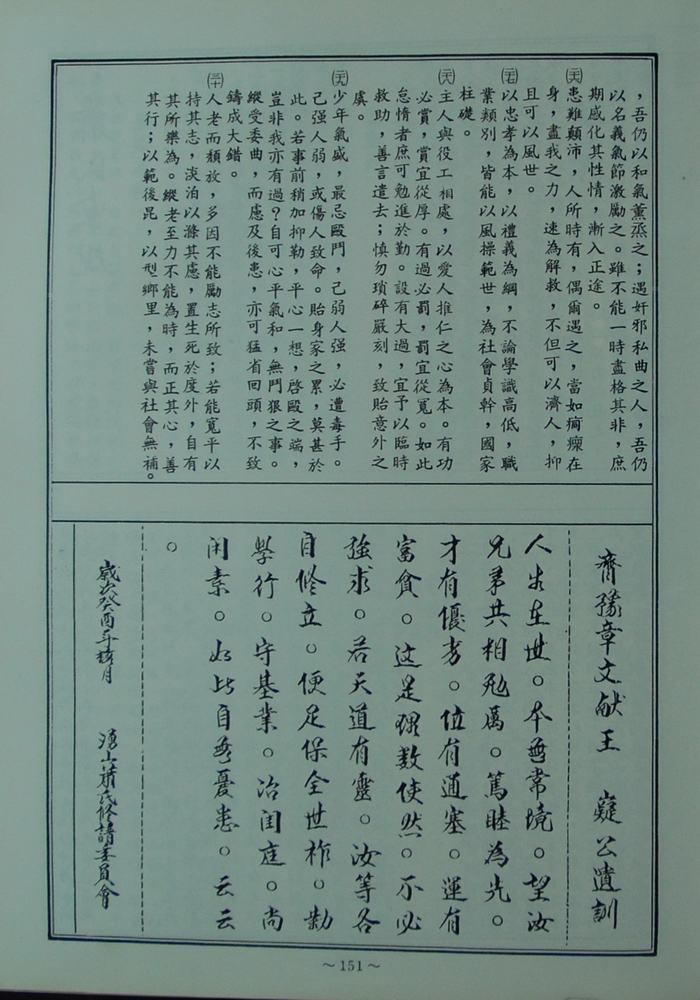 ，吾仍以和氣薰烝之；遇奸邪私曲之人，吾仍
以名義氣節激勵之。雖不能一時盡格其非，庶
期感化其性情，漸入正途。
㊅患難顛沛，人所時有，偶爾遇之，當如痌瘝在
身，盡我之力，速為解救，不但可以濟人，抑
且可以風世。
以忠孝為本，以禮義為綱，不論學識高低，職
業類別，皆能以風操範世，為社會貞幹，國家
柱礎。
主人與役工相處，以愛人推仁之心為本。有功
必賞，賞宜從厚。有過必罰，罰宜從寬。如此
怠惰者庶可勉進於勤。設有大過，宜予以臨時
救助，善言遣去；慎勿瑣碎嚴刻，致貽意外之
虞。
少年氣盛，最忌毆鬥，己弱人强，必遭毒手。
己强人弱，或傷人致命。貽身家之累，莫甚於
此。若事前稍加抑勒，平心一想，啓毆之端，
豈非我亦有過？自可心平氣和，無鬥狠之事。
縱受委曲，而慮及後患，亦可猛省回頭，不致
鑄成大錯。
人老而頹放，多因不能勵志所致；若能寬平以
持其志，淡泊以滌其慮，置生死於度外，自有
其所樂為。縱老至力不能為時，而正其心，善
其行；以範後昆，以型鄉里，未嘗與社會無補。
齊豫章文献王 嶷公遺訓
人生在世。本無常境。望汝
兄弟共相勉厲。篤睦為先。
才有優劣。位有通塞。運有
富貧。這是理數使然。不必
強求。若天道有靈。汝等各
自修立。便足保全世祚。勤
學行。守基業。治閨庭。尚
閑素。如此自無憂患。云云
。
歲次癸酉年
蕭氏修譜委員會
～151～